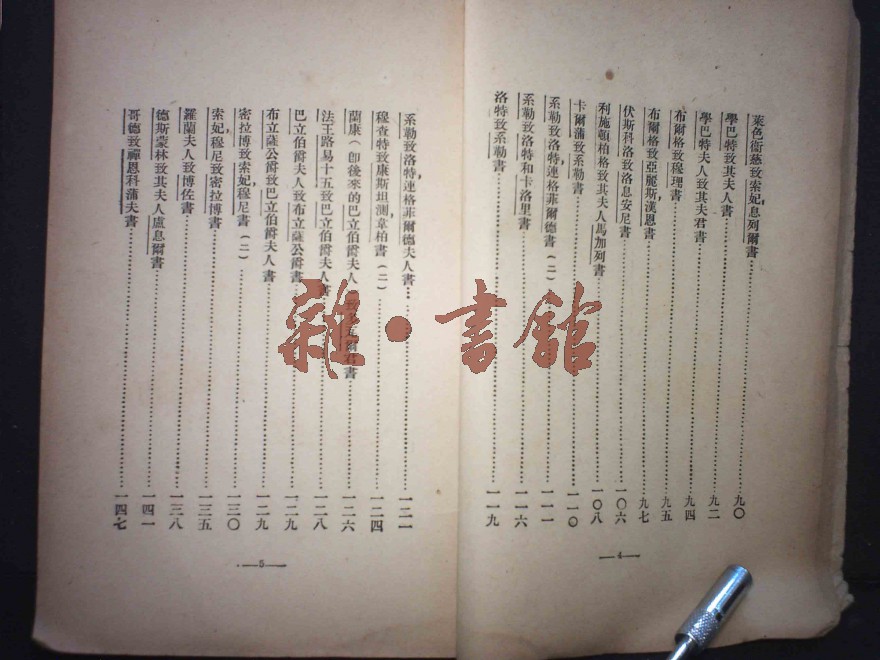 萊色衞慈致索妃,息列爾書……九〇
學巴特致其夫人書……九二
學巴特夫人致其夫君書……九四
布爾格致穆理書……九五
布爾格致亞麗斯漢恩書……九七
伏斯科洛致洛息安尼書……一〇六
利施頓柏格致其夫人馬加列書……一〇八
卡爾蒲致系勒書……一一〇
系勒致洛特,連格菲爾德書(二)……一一一
系勒致洛特和卡洛里書……一一六
洛特致系勒書……一一九
—4—
系勒致洛特連格菲爾德夫人書……一二一
穆查特致康斯坦測,韋柏書(二)……一二四
蘭康(即後來的巴立伯爵夫人 書……一二六
法王路易十五致巴立伯爵夫人書……一二八
巴立伯爵夫人致布立薩公爵書……一二九
布立薩公爵致巴立伯爵夫人書……一二九
密拉博致索妃,穆尼書(二)……一三〇
索妃,穆尼致密拉博書……一三五
羅蘭夫人致博佐書……一三八
德斯蒙林致其夫人盧息爾書……一四一
哥德致禪恩科蒲夫書……一四七
—5—
雜·書館